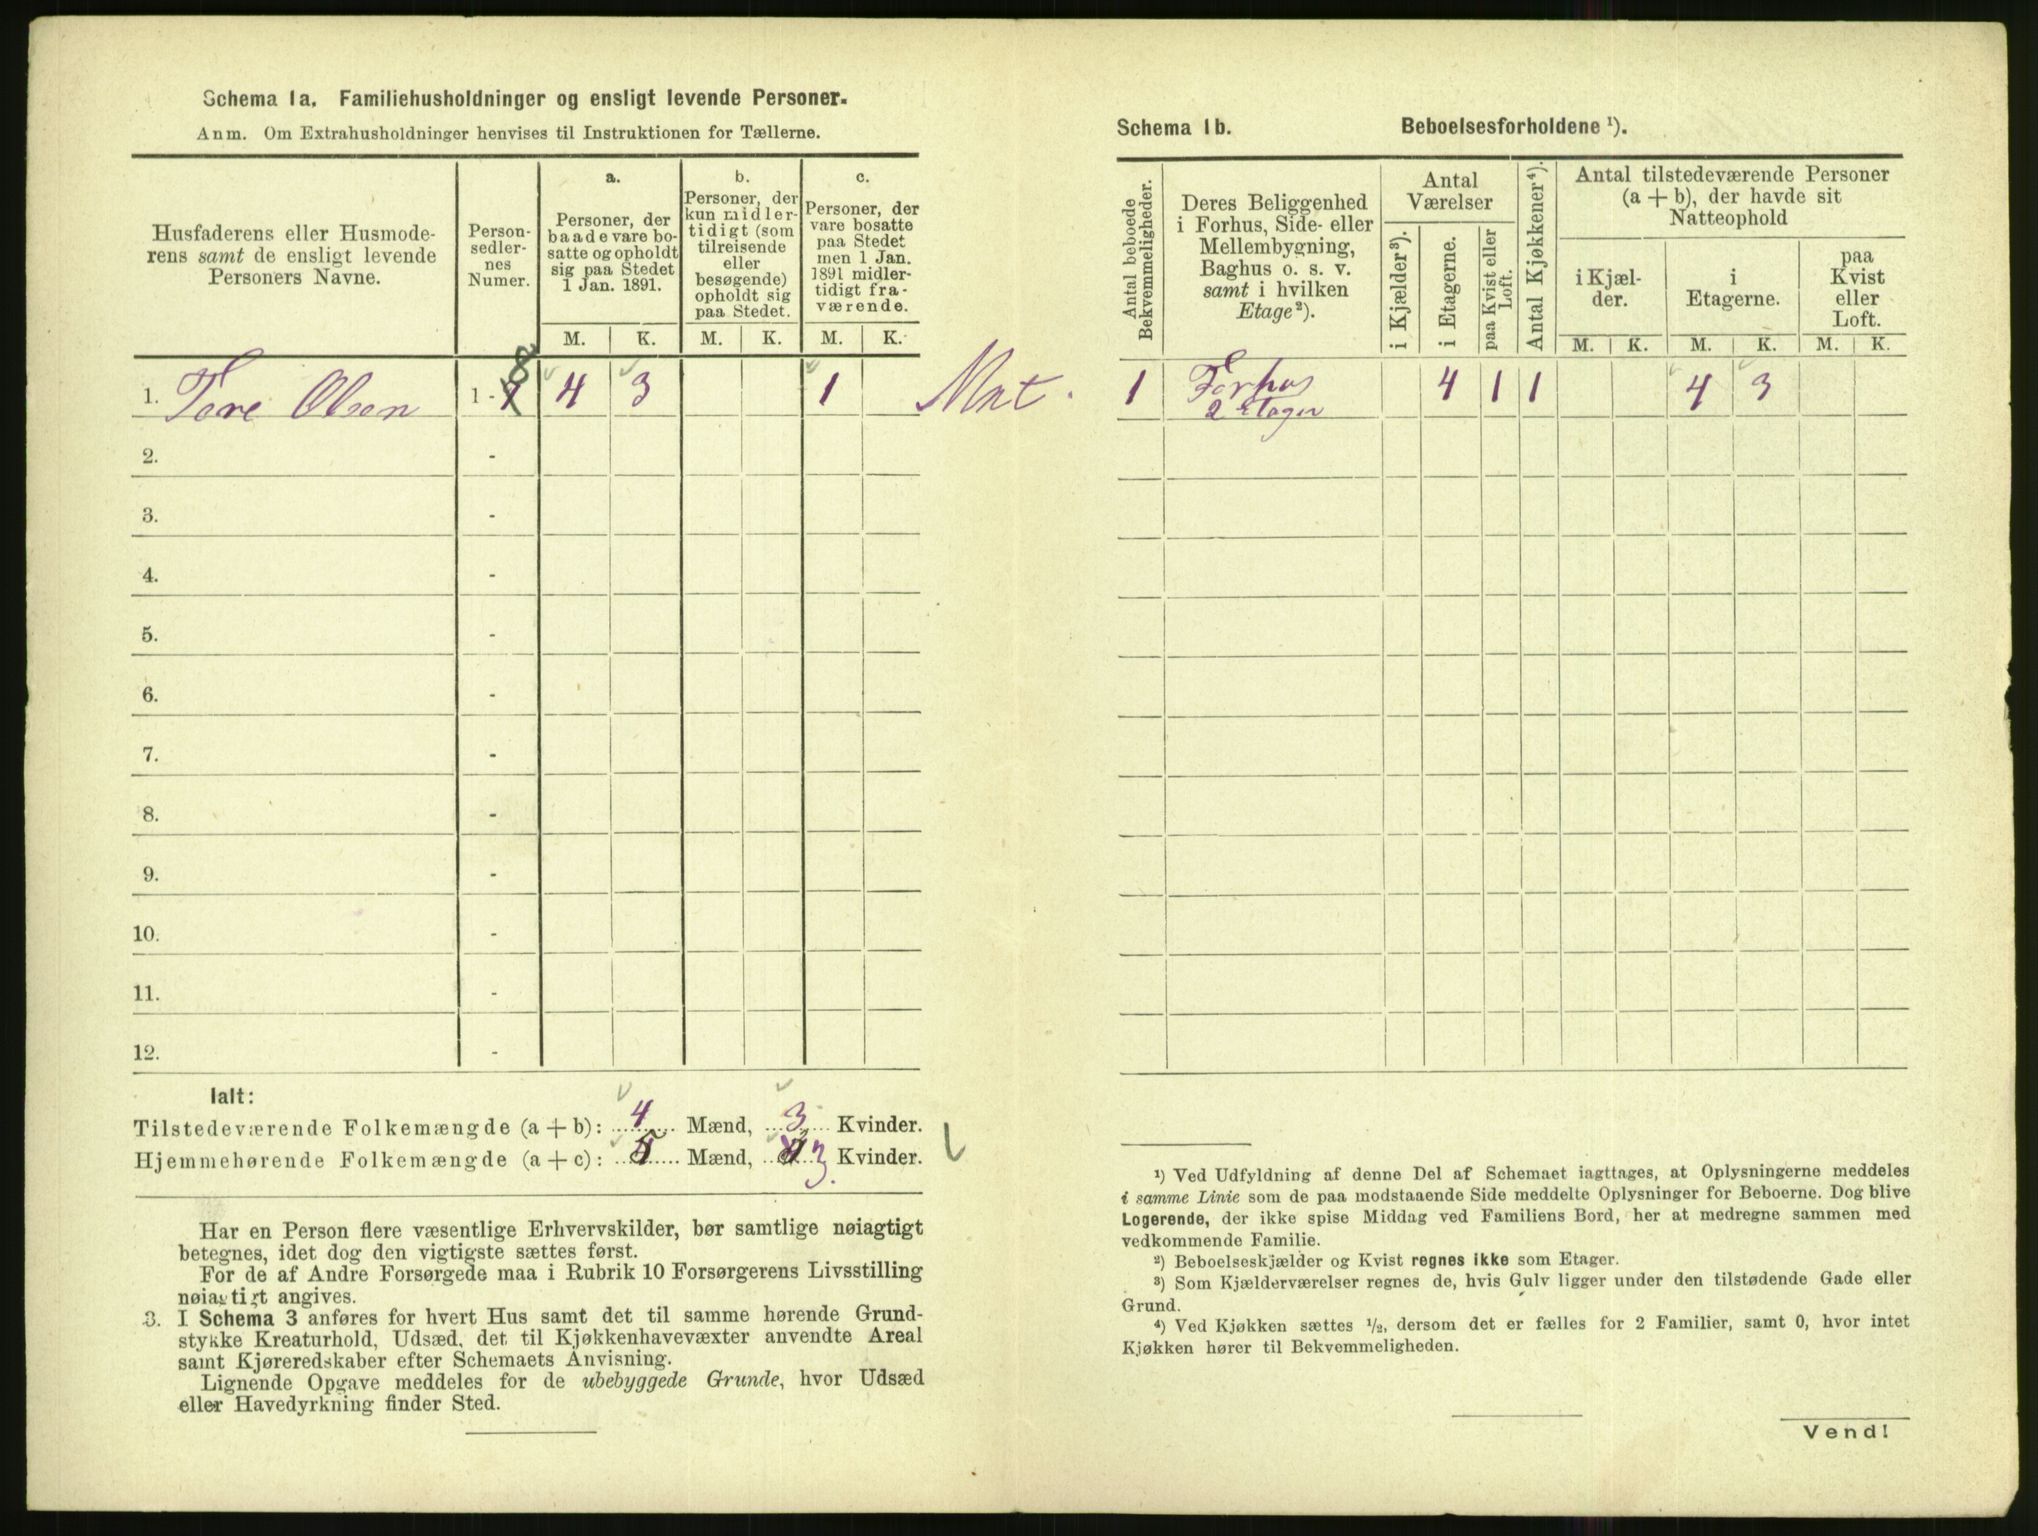 Schema 1a. Familiehusholdninger og ensligt levende Personer.
Anm. Om Extrahusholdninger henvises til Instruktionen for Tællerne.
Husfaderens eller Husmode-
rens samt de ensligt levende
Personers Navne.
Person-
sedler-
nes
Numer.
a.
Personer, der
baade vare bo-
satte og opholdt
sig paa Stedet
1 Jan. 1891.
b.
Personer, der
kun midler-
tidigt (som
tilreisende
eller
besøgende)
opholdt sig
paa Stedet.
c.
Personer, der
vare bosatte
paa Stedet
men 1 Jan.
1891 midler-
tidigt fra-
værende.
M. K. M. K. M. K.
1. Tore Olsen 1 - 8 4 3 1 Mat.
2. -
3. -
4. -
5. -
6. -
7. -
8. -
9. -
10. -
11. -
12. -
Ialt:
Tilstedeværende Folkemængde (a + b): 4 Mænd, 3 Kvinder.
Hjemmehørende Folkemængde (a + c): 5 Mænd, 3. Kvinder.
Har en Person flere væsentlige Erhvervskilder, bør samtlige nøiagtigt
betegnes, idet dog den vigtigste sættes først.
For de af Andre Forsørgede maa i Rubrik 10 Forsørgerens Livsstilling
nøiagtigt angives.
3. I Schema 3 anføres for hvert Hus samt det til samme hørende Grund-
stykke Kreaturhold, Udsæd, det til Kjøkkenhavevæxter anvendte Areal
samt Kjøreredskaber efter Schemaets Anvisning.
Lignende Opgave meddeles for de ubebyggede Grunde, hvor Udsæd
eller Havedyrkning finder Sted.
Schema 1b. Beboelsesforholdene ¹).
Antal beboede
Bekvemmeligheder.
Deres Beliggenhed
i Forhus, Side- eller
Mellembygning,
Baghus o. s. v.
samt i hvilken
Etage ²).
Antal
Værelser
i Kjælder ³).
i Etagerne.
paa Kvist eller
Loft.
Antal Kjøkkener ⁴).
Antal tilstedeværende Personer
(a + b), der havde sit
Natteophold
i Kjæl-
der.
i
Etagerne.
paa
Kvist
eller
Loft.
M. K. M. K. M. K.
1 Forhus 4 1 1 4 3
2 Etager
¹) Ved Udfyldning af denne Del af Schemaet iagttages, at Oplysningerne meddeles
i samme Linie som de paa modstaaende Side meddelte Oplysninger for Beboerne. Dog blive
Logerende, der ikke spise Middag ved Familiens Bord, her at medregne sammen med
vedkommende Familie.
²) Beboelseskjælder og Kvist regnes ikke som Etager.
³) Som Kjælderværelser regnes de, hvis Gulv ligger under den tilstødende Gade eller
Grund.
⁴) Ved Kjøkken sættes ½, dersom det er fælles for 2 Familier, samt 0, hvor intet
Kjøkken hører til Bekvemmeligheden.
Vend!